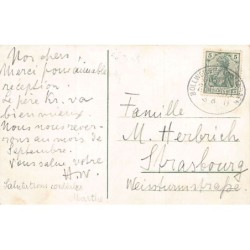 Nos chers,
Merci pour aimable
reception.
Le père Kr. va
bien mieux.
Nous nous rever-
rons au mois de
Septembre.
Vous salue, votre
Salutations cordiales
Martha
Famille
M. Herbrich
Strasbourg
Weissturmstraße.